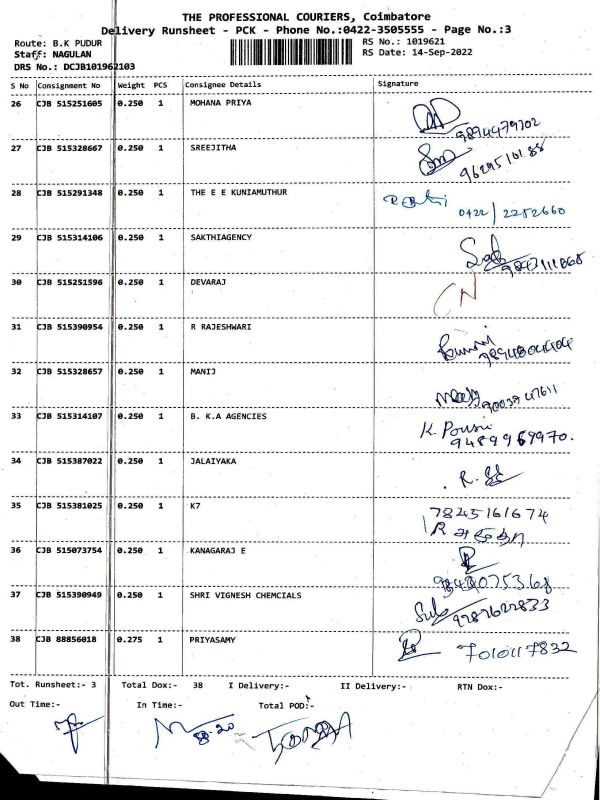 THE PROFESSIONAL COURIERS, Coimbatore
Delivery Runsheet - PCK - Phone No.:0422-3505555 - Page No.:3
Route: B.K PUDUR RS No.: 1019621
Staff: NAGULAN RS Date: 14-Sep-2022
DRS No.: DCJB101962103
S No Consignment No Weight PCS Consignee Details Signature
26 CJB 515251605 0.250 1 MOHANA PRIYA
9894479702
27 CJB 515328667 0.250 1 SREEJITHA
28 CJB 515291348 0.250 1 THE E E KUNIAMUTHUR
0422/2252660
29 CJB 515314106 0.250 1 SAKTHIAGENCY
30 CJB 515251596 0.250 1 DEVARAJ
CN
31 CJB 515390954 0.250 1 R RAJESHWARI
32 CJB 515328657 0.250 1 MANIJ
33 CJB 515314107 0.250 1 B. K.A AGENCIES
9489969970.
34 CJB 515387022 0.250 1 JALAIYAKA
35 CJB 515381025 0.250 1 K7
7845161674
36 CJB 515073754 0.250 1 KANAGARAJ E
37 CJB 515390949 0.250 1 SHRI VIGNESH CHEMCIALS
38 CJB 88856018 0.275 1 PRIYASAMY
7010117832
Tot. Runsheet:- 3 Total Dox:- 38 I Delivery:- II Delivery:- RTN Dox:-
Out Time:- In Time:- Total POD:-